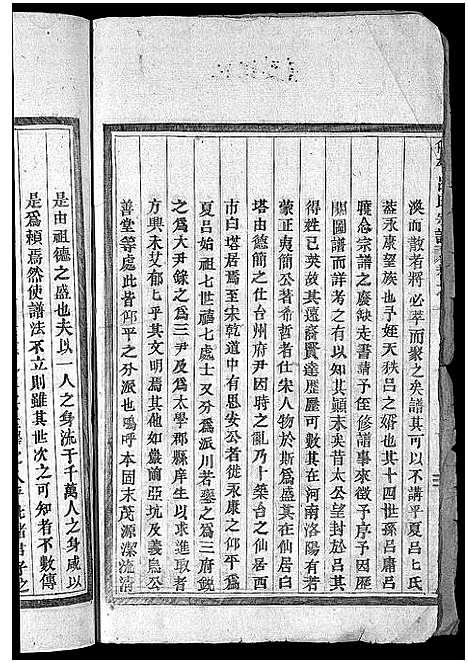 渙而散者將必萃而聚之矣譜其可以不講乎夏呂氏
蓋永康望族也予姪天秩呂之婿也其十四世孫呂庸呂
雅念宗譜之廢缺走書請予侄修譜事來徵予序予因歷
關圖譜而詳考之有以知其顛末矣昔太公望封於呂其
得姓已英故其遠裔賢達歷歷可數其在河南洛陽有若
蒙正夷簡公著希哲者仕宋人物於斯為盛其在仙居白
塔由億簡之仕台州府尹因時之亂乃卜築台之仙居西
市白塔居焉至宋乾道中有思安公者徙永康之仰平為
夏呂始祖七世禱七處士又分為派川若鑾之為三府銳
之為大尹錄之為三尹及為太學郡縣庠生以求進取者
方興未艾郁乜乎其文明也其他如嚴前亞坑及義烏公
善堂等處此皆仰平之分派也嗚呼本固末茂源潔流清
是由祖德之盛也夫以一人之身流于千萬人之身咸以
是為賴焉然使譜法不立則雖其世次之可知者不數傳